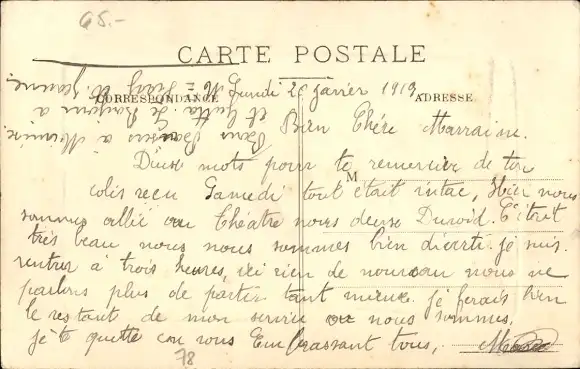 65.-
CARTE POSTALE
CORRESPONDANCE
ADRESSE
Lundi 20 Janvier 1919
Bien Chére Marraine.
Deux mots pour te remercier de ton
M
colis recu Samedi tout était intac, Hier nous
sommes allié au Théatre nous deux C'étret
très beau nous nous sommes bien diverti je suis
rentrer à trois heures, ici rien de nouveau nous ne
parlons plus de partir tant mieux. je ferais bien
le restant de mon service ou nous sommes.
je te quitte en vous Embrassant tous,
78